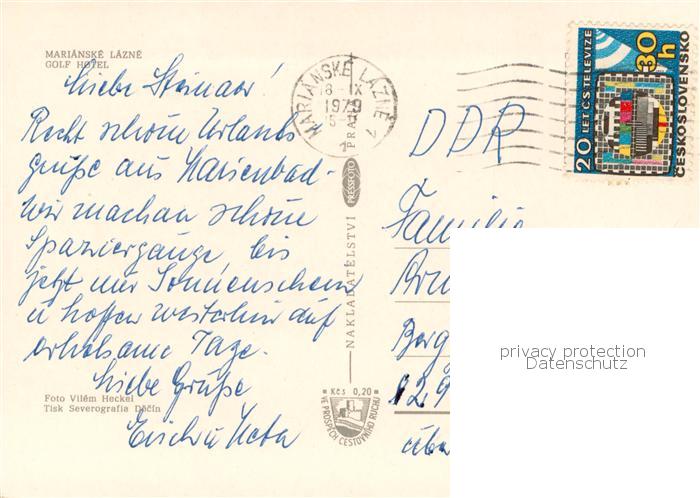 MARIÁNSKÉ LÁZNĚ
GOLF HOTEL
Liebe
Recht schöne Urlaubs
grüße aus Marienbad-
Wir machen schöne
Spaziergänge, bis
jetzt nur Sonnenschein
u hoffen weiterhin auf
erholsame Tage.
Liebe Grüße
Foto Vilém Heckel
Tisk Severografia Děčín
MARIÁNSKÉ LÁZNĚ 7
18-IX
1979
NAKLADATELSTVÍ PRESSFOTO PRAHA
Kčs 0,20
VE PROSPĚCH CESTOVNÍHO RUCHU
20 LET ČS.TELEVIZE
30h
ČESKOSLOVENSKO
DDR
Familie
Berg
privacy protection
Datenschutz